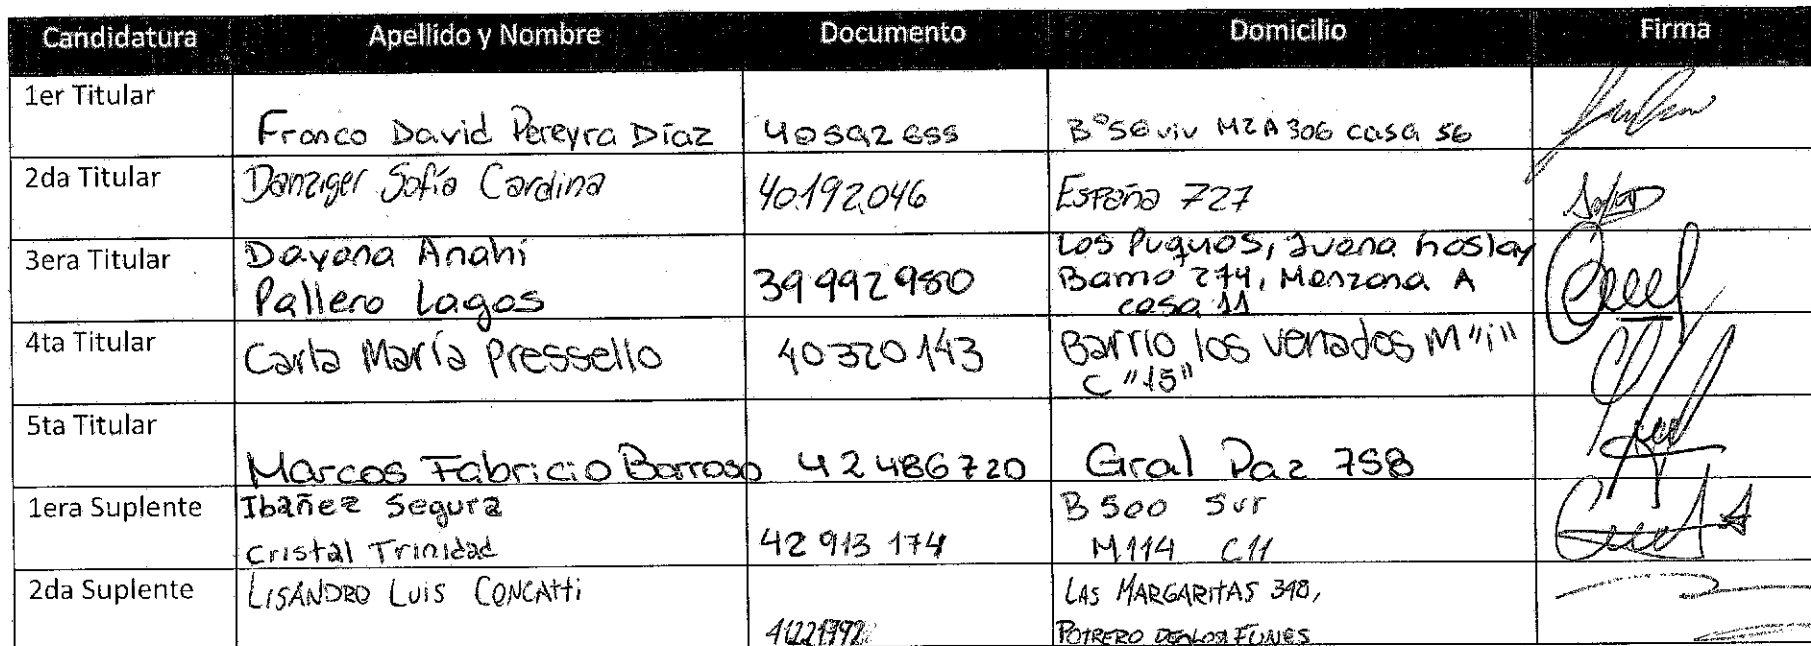 Candidatura Apellido y Nombre Documento Domicilio Firma
1er Titular
Franco David Pereyra Díaz 40592655 B° 50 viv MZA 306 casa 56
2da Titular Danziger Sofía Carolina 40.192.046 España 727
3era Titular Dayana Anahí
Pallero Lagos 39992980 Los Puquios, Juana
Barrio 274, Manzana A
casa 11
4ta Titular Carla María Pressello 40320143 Barrio los venados M "i"
C "15"
5ta Titular
Marcos Fabricio Barroso 42486720 Gral Paz 758
1era Suplente Ibañez Segura
Cristal Trinidad 42 913 174 B 500 Sur
M114 C11
2da Suplente LISANDRO LUIS CONCATTI LAS MARGARITAS 398,
POTRERO DE LOS FUNES